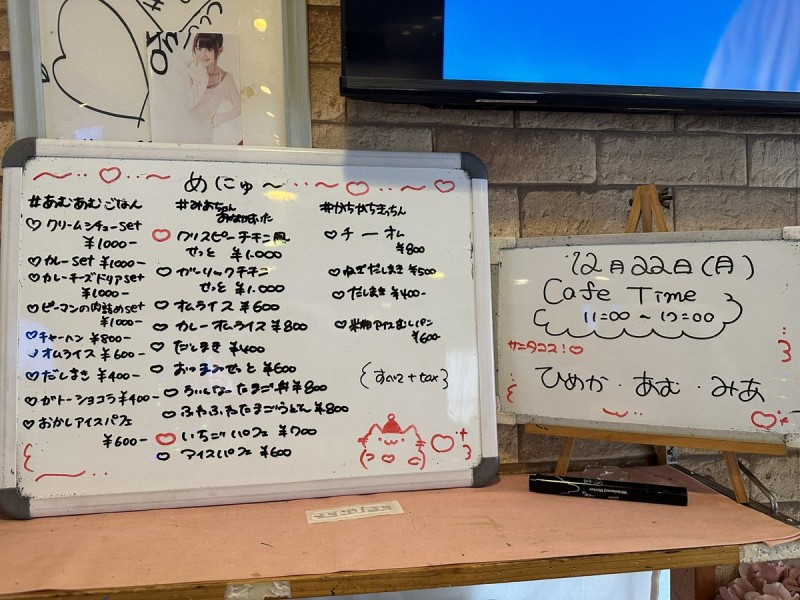 めにゅ〜
#あむあむごはん
♡クリームシチューset
¥1000-
♡カレーset ¥1000-
♡カレーチーズドリアset
¥1000-
♡ピーマンの肉詰めset
¥1000-
♡チャーハン ¥800-
オムライス ¥600-
♡だしまき ¥400-
♡ガトーショコラ ¥400-
♡おかしアイスパフェ
¥600-
#みおちゃん
おなかすいた
♡クリスピーチキン風
せっと ¥1.000
♡ガーリックチキン
せっと ¥1.000
♡オムライス ¥600
♡カレーオムライス ¥800
♡だしまき ¥400
♡おつまみせっと ¥600
たまご丼 ¥800
♡ふわふわたまごうどん ¥800
♡いちごパフェ ¥700
♡アイスパフェ ¥600
♡チーオム
¥800
♡ねぎだしまき ¥500
♡だしまき ¥400-
♡米粉アイスむしパン
¥600-
{すべて+tax}
12月22日(月)
Cafe Time
11:00 〜 17:00
サンタコス!♡
ひめか・あむ・みあ
Whiteboard Marker